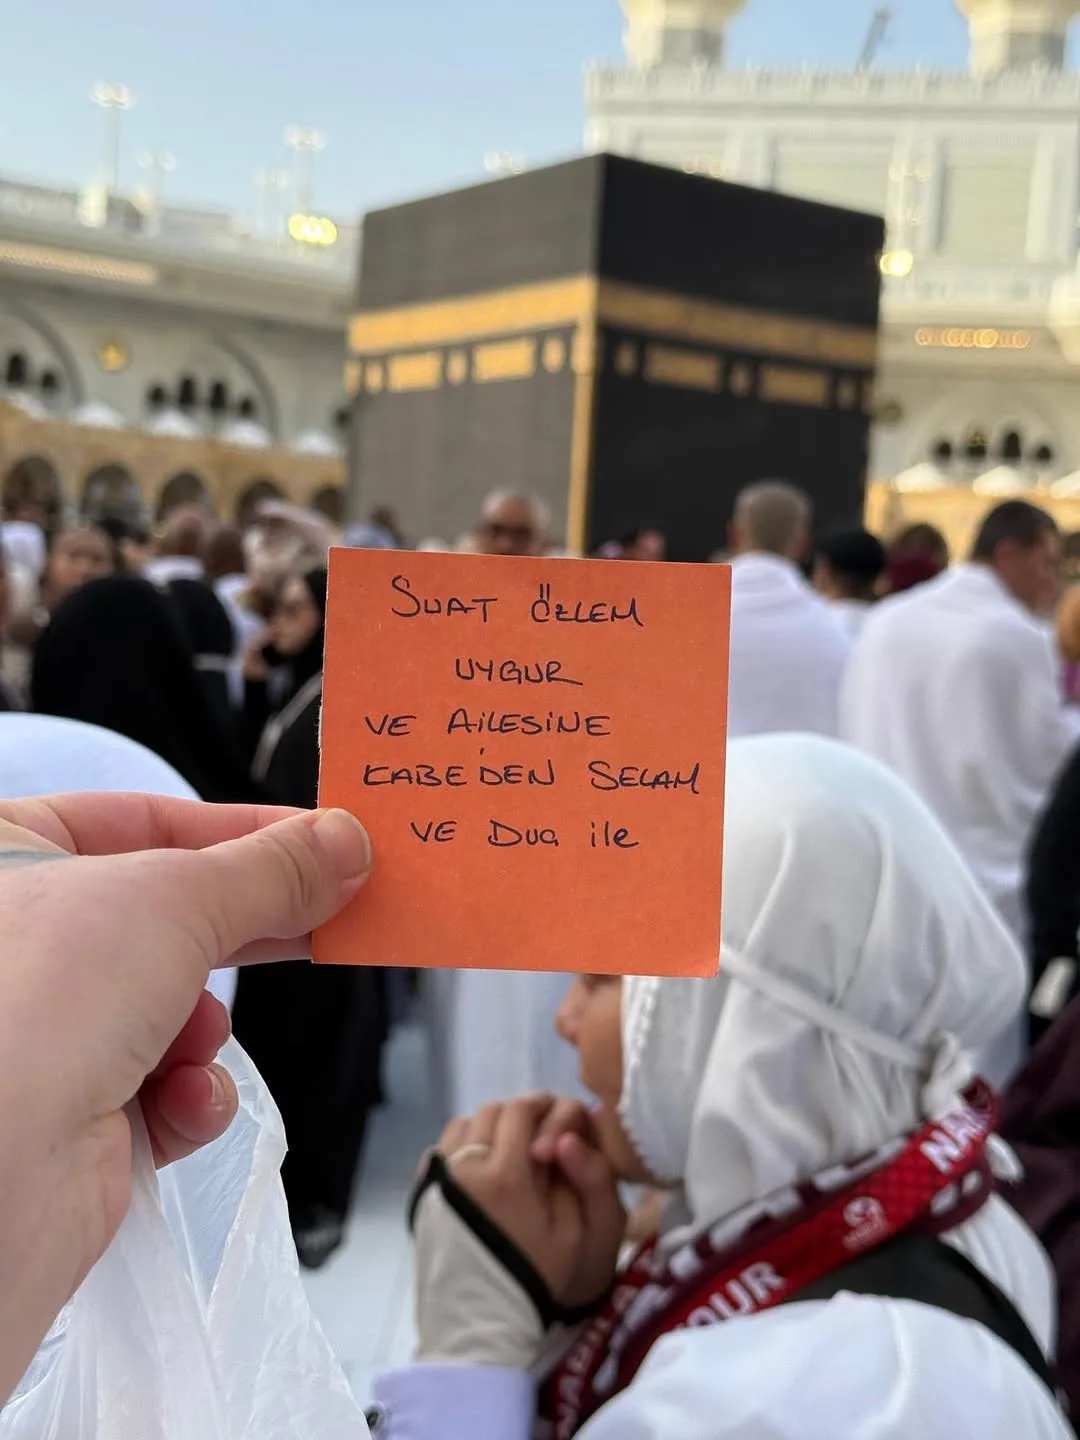 SUAT ÖZLEM
UYGUR
VE AiLESiNE
KABE'DEN SELAM
VE Dua ile
NAB
OUR